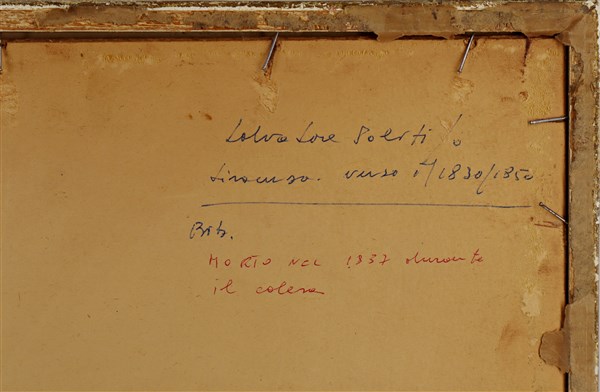 Salvatore Politi
Siracusa. verso il 1830/1850
Bib.
MORTO NEL 1937 durante
il colera